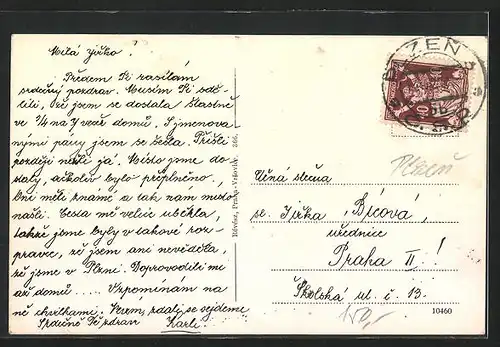 Milá Jiřko!
Předem Ti zasílám
srdečný pozdrav. Musím Ti sdě-
liti, že jsem se dostala šťastně
ve 1/4 na 7 večer domů. S jmenova
nými pány jsem se sešla. Přišli
později než já. Místo jsme do
staly, ačkoliv bylo přeplněno,
oni měli známé a tak nám místo
našli. Cesta mě velice uběhla,
takže jsme byly v takové roz-
pravce, že jsem ani nevěděla,
že jsme v Plzni. Doprovodili mě
až domů..... Vzpomínám na
ně chvílkami. Kam, zdali se sejdeme
Srdečně Tě zdraví Karla.
Růvězu, Praha-Vršovice. 366.
PLZEŇ
Plzeň
Vážná slečna
sl. Jiřka Bícová,
úřednice
Praha II!
Školská ul. č. 13.
10460